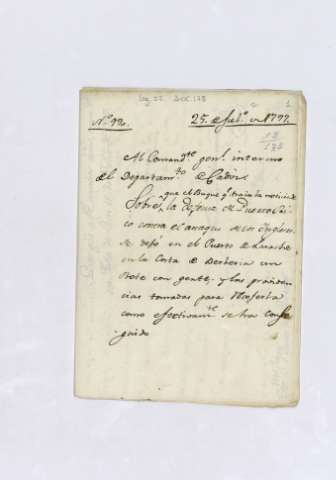 Leg. 52 Doc. 178
1
Nº. 92. 25. de Jul.º de 1797.
12
178
Al Comand.te gen.l interino
del Departam.to de Cadiz
que el Buque q.e traia la noticia
Sobre la defensa de Puerto Ri
co contra el ataque de los Ingleses
se dejó en el Puerto de Larache
en la Costa de Berberia un
Bote con gente, y las providen
cias tomadas para
como efectivam.te se ha conse
guido